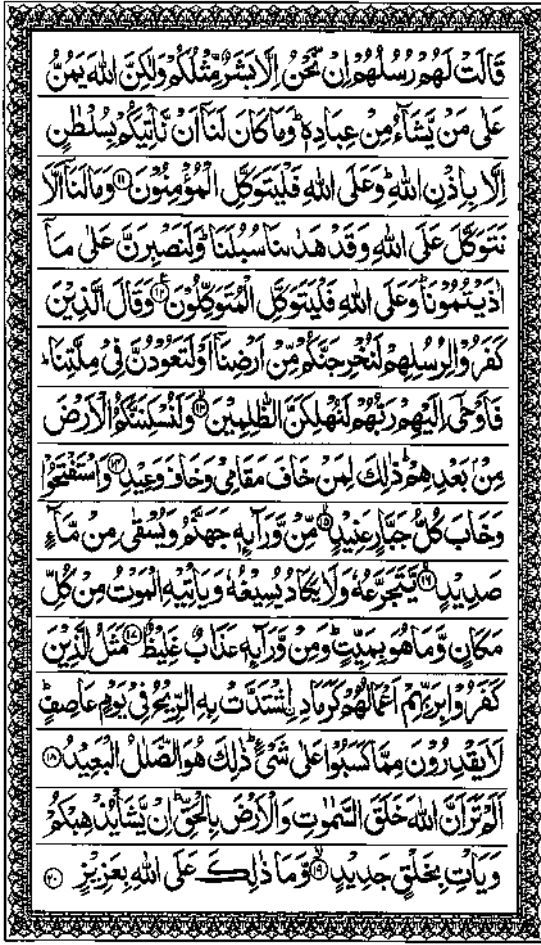 قَالَتْ لَهُمْ رُسُلُهُمْ اِنْ نَّحْنُ اِلَّا بَشَرٌ مِّثْلُكُمْ وَلٰكِنَّ اللّٰهَ يَمُنُّ
عَلٰى مَنْ يَّشَآءُ مِنْ عِبَادِهٖ ؕ وَمَا كَانَ لَنَآ اَنْ نَّاْتِيَكُمْ بِسُلْطٰنٍ
اِلَّا بِاِذْنِ اللّٰهِ ؕ وَعَلَى اللّٰهِ فَلْيَتَوَكَّلِ الْمُؤْمِنُوْنَ ۝۱۱ وَمَا لَنَآ اَلَّا
نَتَوَكَّلَ عَلَى اللّٰهِ وَقَدْ هَدٰىنَا سُبُلَنَا ؕ وَلَنَصْبِرَنَّ عَلٰى مَآ
اٰذَيْتُمُوْنَا ؕ وَعَلَى اللّٰهِ فَلْيَتَوَكَّلِ الْمُتَوَكِّلُوْنَ ۝۱۲ وَقَالَ الَّذِيْنَ
كَفَرُوْا لِرُسُلِهِمْ لَنُخْرِجَنَّكُمْ مِّنْ اَرْضِنَآ اَوْ لَتَعُوْدُنَّ فِيْ مِلَّتِنَا ؕ
فَاَوْحٰٓى اِلَيْهِمْ رَبُّهُمْ لَنُهْلِكَنَّ الظّٰلِمِيْنَ ۝۱۳ وَلَنُسْكِنَنَّكُمُ الْاَرْضَ
مِنْۢ بَعْدِهِمْ ؕ ذٰلِكَ لِمَنْ خَافَ مَقَامِيْ وَخَافَ وَعِيْدِ ۝۱۴ وَاسْتَفْتَحُوْا
وَخَابَ كُلُّ جَبَّارٍ عَنِيْدٍ ۝۱۵ مِّنْ وَّرَآئِهٖ جَهَنَّمُ وَيُسْقٰى مِنْ مَّآءٍ
صَدِيْدٍ ۝۱۶ يَّتَجَرَّعُهٗ وَلَا يَكَادُ يُسِيْغُهٗ وَيَاْتِيْهِ الْمَوْتُ مِنْ كُلِّ
مَكَانٍ وَّمَا هُوَ بِمَيِّتٍ ؕ وَمِنْ وَّرَآئِهٖ عَذَابٌ غَلِيْظٌ ۝۱۷ مَثَلُ الَّذِيْنَ
كَفَرُوْا بِرَبِّهِمْ اَعْمَالُهُمْ كَرَمَادِ ۨاشْتَدَّتْ بِهِ الرِّيْحُ فِيْ يَوْمٍ عَاصِفٍ ؕ
لَا يَقْدِرُوْنَ مِمَّا كَسَبُوْا عَلٰى شَيْءٍ ؕ ذٰلِكَ هُوَ الضَّلٰلُ الْبَعِيْدُ ۝۱۸
اَلَمْ تَرَ اَنَّ اللّٰهَ خَلَقَ السَّمٰوٰتِ وَالْاَرْضَ بِالْحَقِّ ؕ اِنْ يَّشَاْ يُذْهِبْكُمْ
وَيَاْتِ بِخَلْقٍ جَدِيْدٍ ۝۱۹ وَّمَا ذٰلِكَ عَلَى اللّٰهِ بِعَزِيْزٍ ۝۲۰